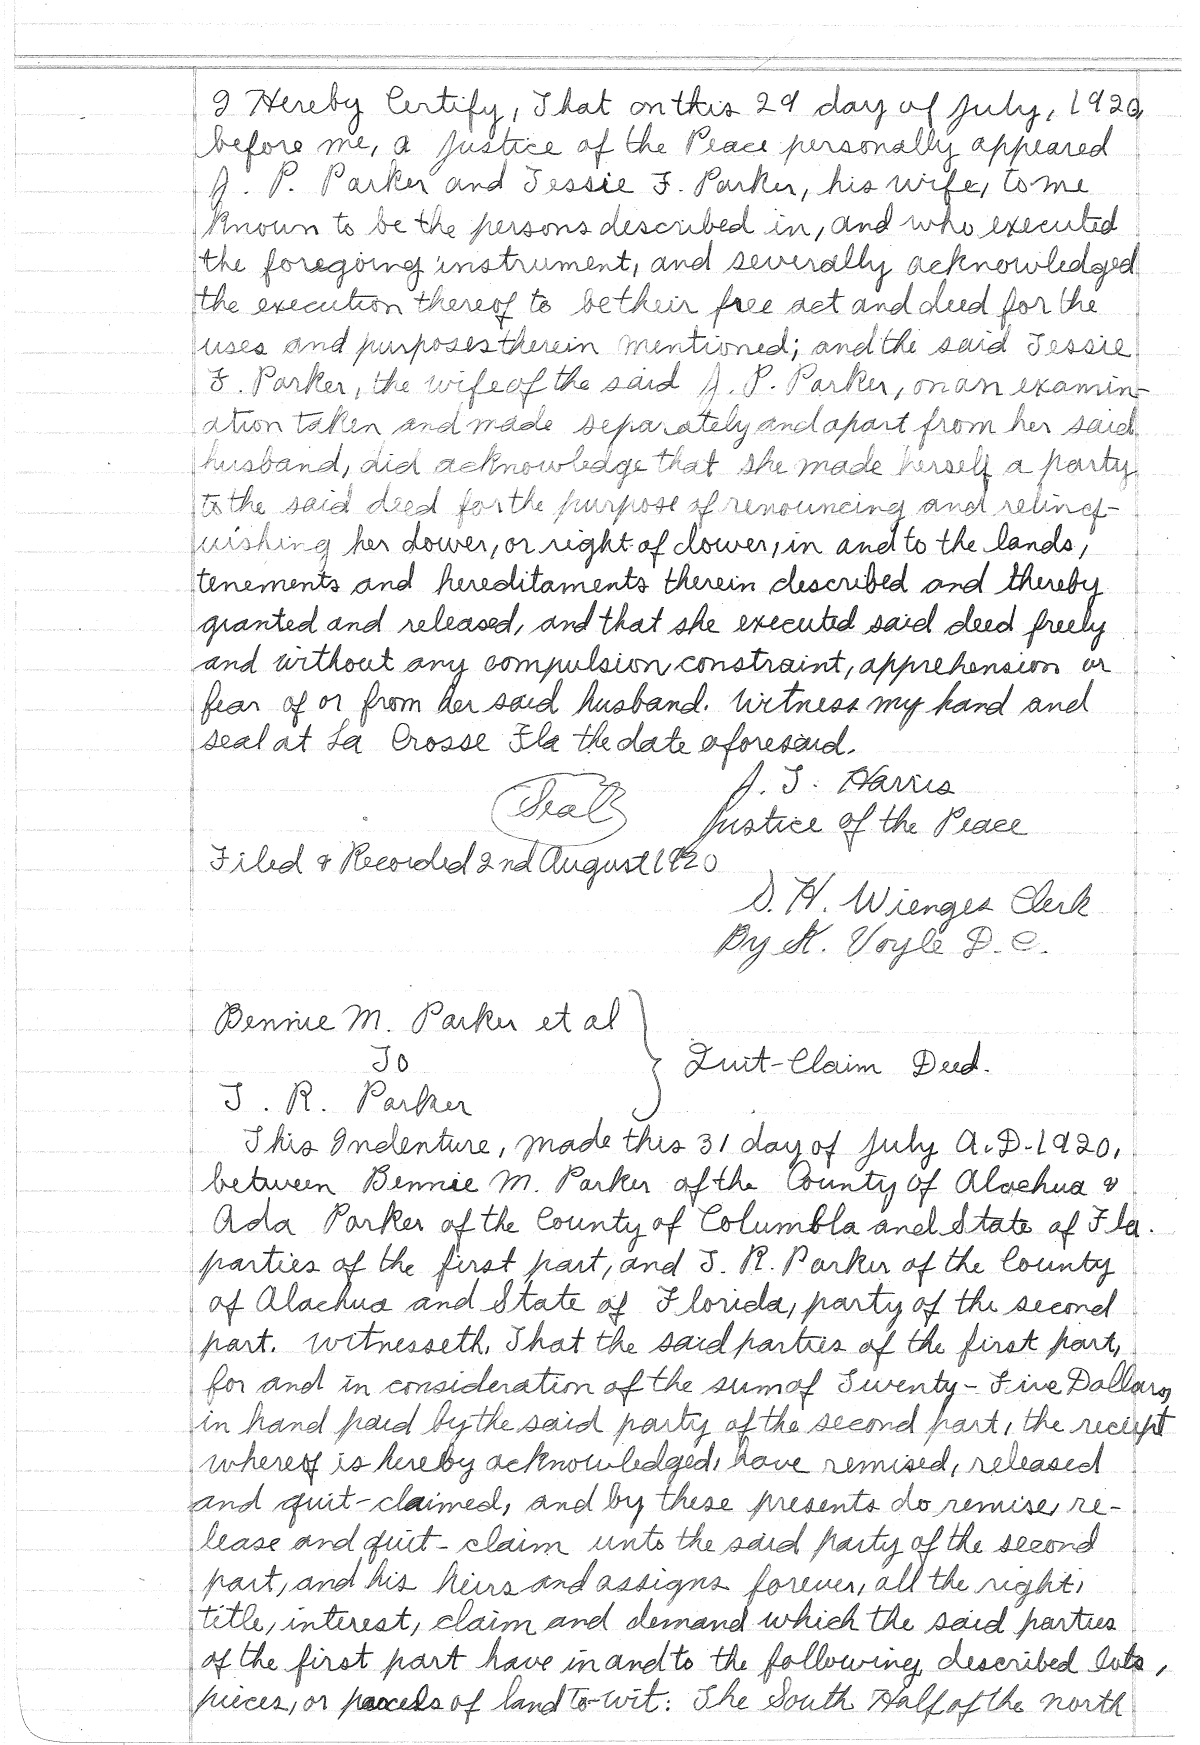 I Hereby Certify, That on this 29 day of July, 1920,
before me, a Justice of the Peace personally appeared
J. P. Parker and Jessie F. Parker, his wife, to me
known to be the persons described in, and who executed
the foregoing instrument, and severally acknowledged
the execution thereof to be their free act and deed for the
uses and purposes therein mentioned; and the said Jessie
F. Parker, the wife of the said J. P. Parker, on an examin-
ation taken and made separately and apart from her said
husband, did acknowledge that she made herself a party
to the said deed for the purpose of renouncing and relinq-
uishing her dower, or right of dower, in and to the lands,
tenements and hereditaments therein described and thereby
granted and released, and that she executed said deed freely
and without any compulsion, constraint, apprehension or
fear of or from her said husband. Witness my hand and
seal at La Crosse Fla the date aforesaid.
J. T. Harris
(Seal) Justice of the Peace
Filed & Recorded 2nd August 1920
S. H. Wienges Clerk
By K. Voyle D. C.
Bennie M. Parker et al
To
Quit-Claim Deed.
J. R. Parker
This Indenture, made this 31 day of July A.D. 1920,
between Bennie M. Parker of the County of Alachua &
Ada Parker of the County of Columbia and State of Fla.
parties of the first part, and J. R. Parker of the County
of Alachua and State of Florida, party of the second
part. Witnesseth, That the said parties of the first part,
for and in consideration of the sum of Twenty-Five Dollars,
in hand paid by the said party of the second part, the receipt
whereof is hereby acknowledged, have remised, released
and quit-claimed, and by these presents do remise, re-
lease and quit-claim unto the said party of the second
part, and his heirs and assigns forever, all the right,
title, interest, claim and demand which the said parties
of the first part have in and to the following described lots,
pieces, or parcels of land to-wit: The South Half of the North